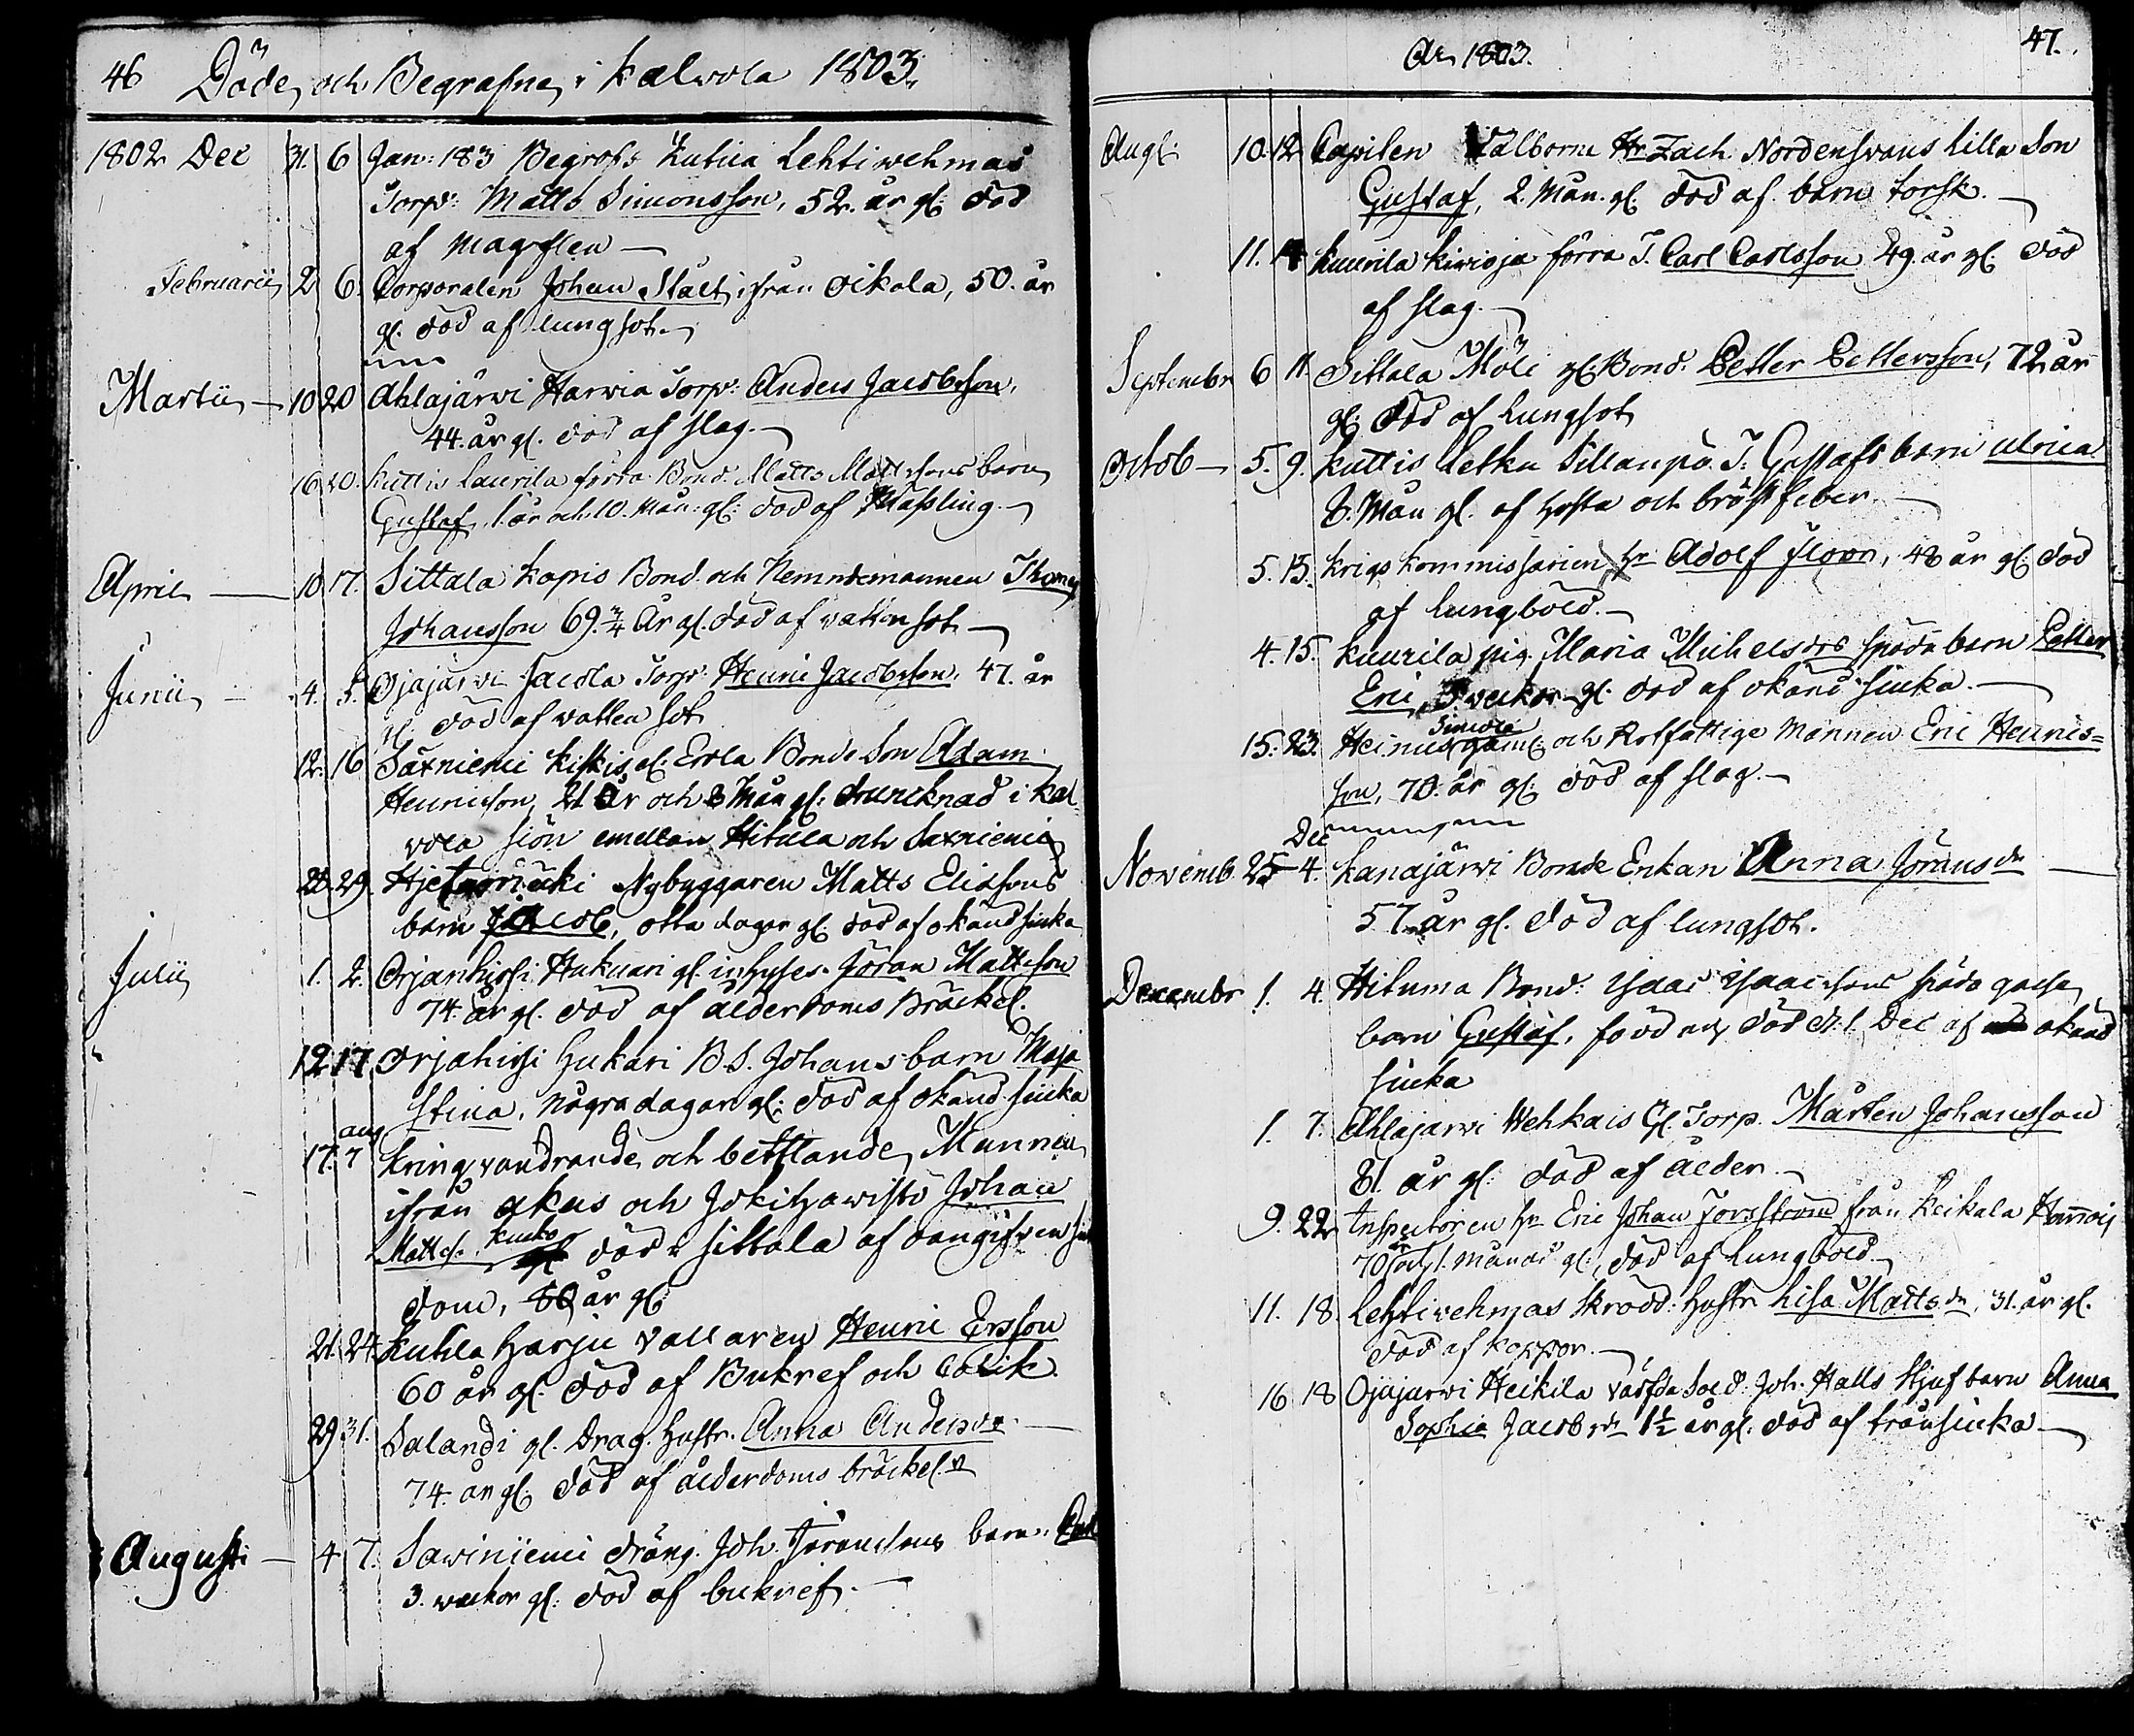 46 Döde och Begrafne i Kalvola 1803.
1802 Dec 31. 6 Jan: 183 Begrofs Lehtiwehmas
Torp: Matts Simonsson, 52. år gl: död
af
Februarii 2 6. Corporalen Johan Stålt ifrån Oikala, 50. år
gl. död af lungsot.
Martii 10 20 Ahlajärvi Harvia Torp: Anders Jacobsson,
44. år gl. död af slag.
16 20. Kuttis Laurila förra Bond. Matts Mattssons barn
Gustaf, 1. år och 10. Mån: gl: död af Mässling.
April 10. 17. Sittala Kapis Bond. och Nemndemannen Thomas
Johansson 69. 3/4 År gl. död af vattensot
Junii 4. 5. Ojajärvi Jacola Torp: Henric Jacobsson, 47. år
gl. död af vattensot
12. 16 Saxniemi Kiskis gl. Erola Bonde Son Adam
Henricsson, 21 År och 3 Mån gl: druncknad i Kal
vola siön emellan Hitula och Saxniemi
28. 29. Nybyggaren Matts Eliasson
barn Jacob, otta dagar gl: död af okänd siuka
Julii 1. 2. Orjanhirsi Hukuari gl. inhyses Jöran Mattsson
74. år gl. död af ålderdoms Bräckel.
12 17 Orjahirsi Hukari B. S. Johans barn Maja
Stina, några dagar gl: död af okänd siuka
aug
17. 7 Kringvandrande och bettlande Mannen
ifrån Akus och Johan
Mattss. Kusko död i Sittala af
dom, 80 år gl:
21. 24. Kuhla Harju Vallaren Henric Ersson
60 år gl: död af Bukref och Colik.
29 31. Salandi gl. Drag. Hustr. Anna Andersdr
74. år gl. död af ålderdoms bräckel.
Augusti 4. 7. Sawiniemi dräng. Joh. Göranssons barn
3. weckor gl: död af bukref.
År 1803. 47.
Aug: 10. 12 Capilen Välborne Hr Zach. Nordensvans lilla Son
Gustaf, 2. Mån. gl: död af barn torsk.
11. 14 Kuurila Kivioja förra T. Carl Carlsson 49. år gl. död
af slag.
Septembr 6 11. Sittala Möli gl. Bond. Petter Pettersson, 72 år
gl: död af lungsot
Octob 5. 9. Kuttis Letku Sillanpä T: Gustafs barn Ulrica
8. Mån gl. af hosta och bröstfeber.
5. 15. Krigs Kommissarien Hr Adolf Floor, 48 år gl död
af lungböld.
4. 15. Kuurila pig. Maria Michelsdrs späda barn Petter
Eric, 3 veckor gl. död af okänd siuka.
Simola
15. 23. Heinus gaml: och Rotfattige Mannen Eric Henrics=
son, 70. år gl: död af slag.
Dec
Novemb. 25 4. Kanajärvi Bonde Enkan Anna Jöransdr
57. år gl. död af lungsot.
Decembr 1. 4. Hituma Bond: Isaac Isaacssons späda
barn Gustaf, född och död d. 1. Dec af okänd
siuka
1. 7. Ahlajärvi Wehkais gl. Torp. Mårten Johansson
81. år gl: död af ålder.
9. 22 Inspectoren Hr Eric Johan Forsström från Keikala
70 år och 1. månad gl:, död af lungböld
11. 18. Lehtivehmas Skrädd: Hustr Lisa Mattsdr, 31. år gl.
död af koppor.
16 18 Ojajärvi Heikila värfda Sold. Joh. Halls Stjufbarn Anna
Sophia Jacobsdr 1½ år gl: död af trånsiuka